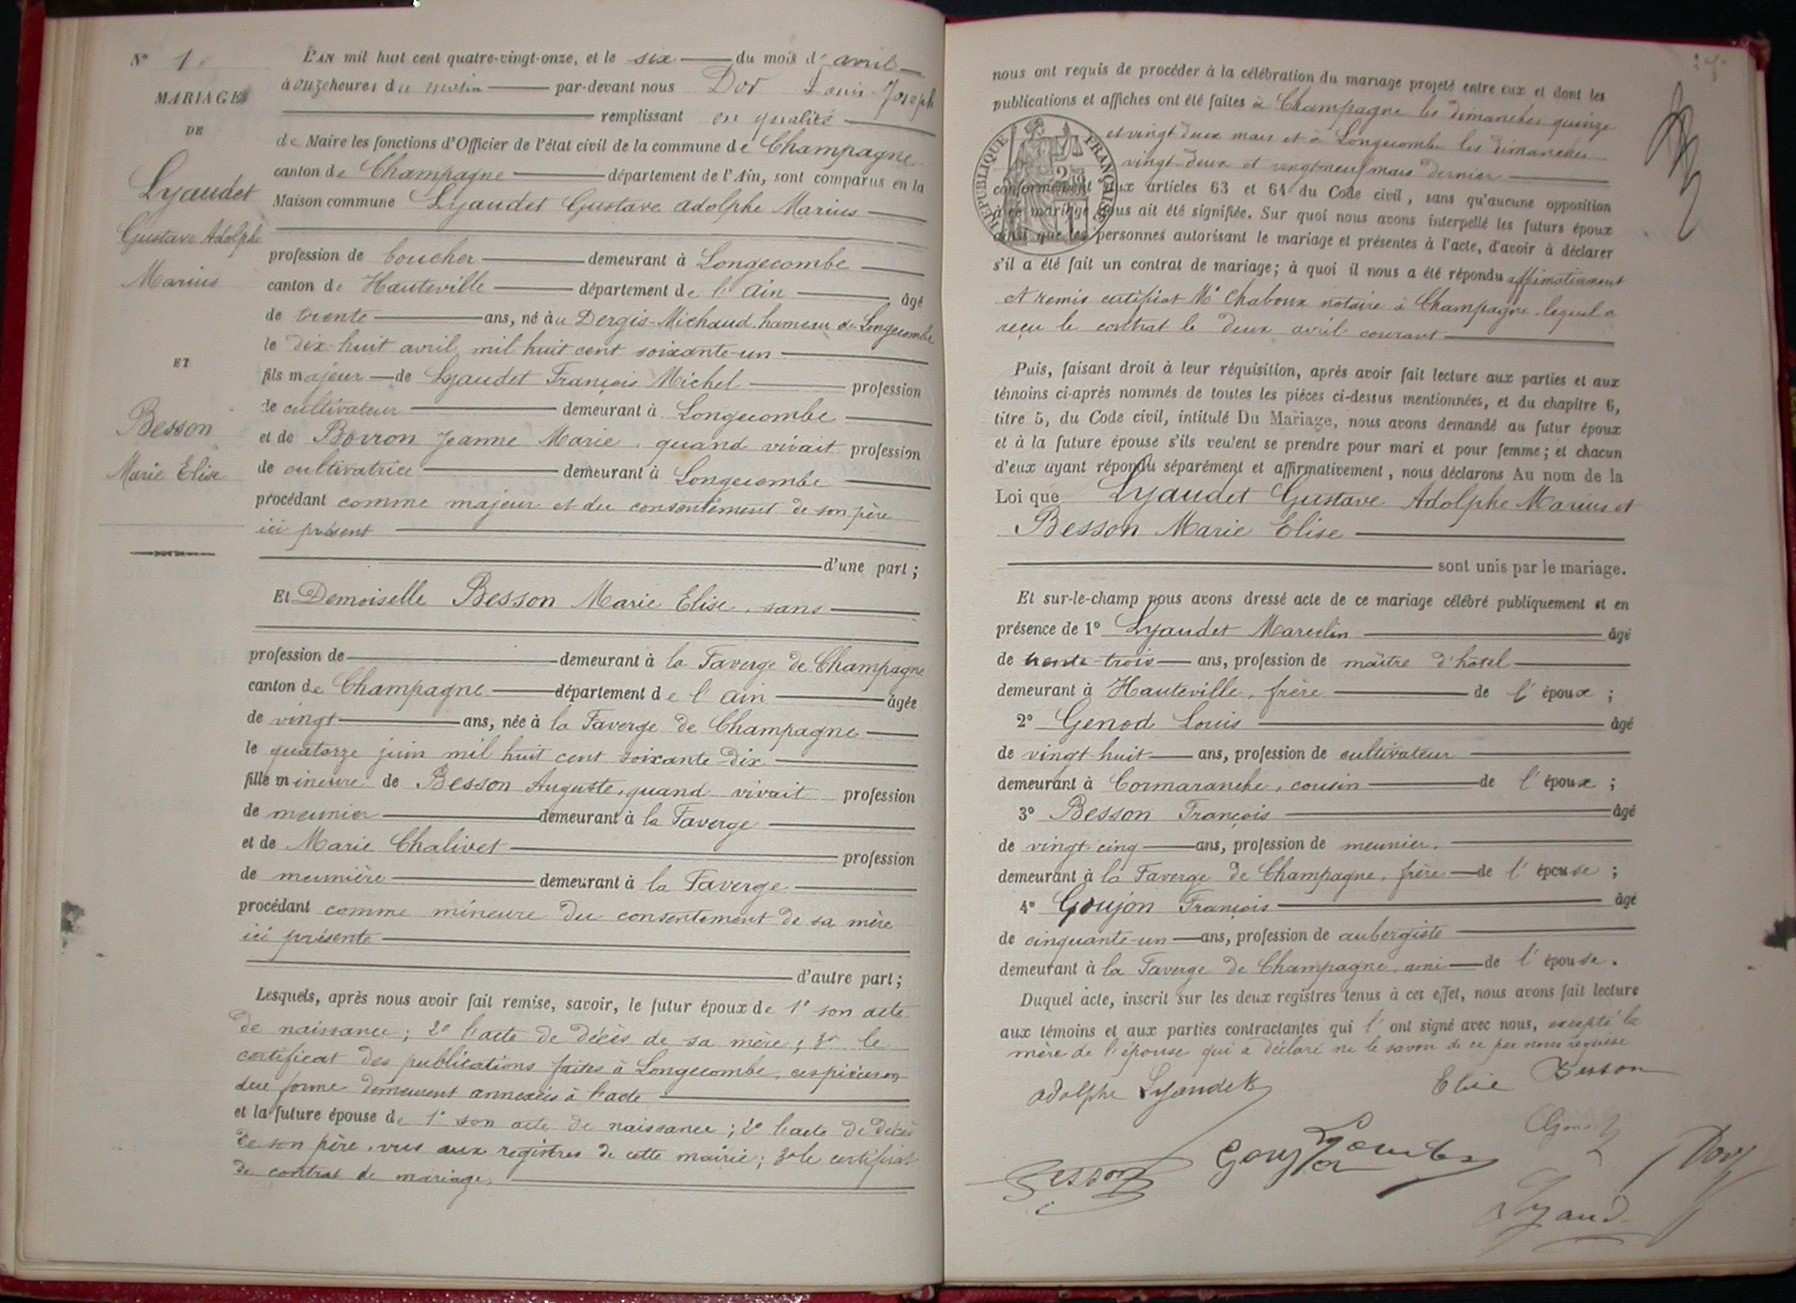 N° 1
MARIAGE
DE
Lyaudet
Gustave Adolphe
Marius
ET
Besson
Marie Elise
L'AN mil huit cent quatre-vingt-onze, et le six du mois d'avril
à onze heures du matin par-devant nous Dor Louis Joseph
remplissant en qualité
de Maire les fonctions d'Officier de l'état civil de la commune de Champagne
canton de Champagne département de l'Ain, sont comparus en la
Maison commune Lyaudet Gustave Adolphe Marius
profession de boucher demeurant à Longecombe
canton de Hauteville département de l'Ain âgé
de trente ans, né au Dergis-Michaud hameau de Longecombe
le dix-huit avril mil huit cent soixante-un
fils majeur de Lyaudet François Michel profession
de cultivateur demeurant à Longecombe
et de Borron Jeanne Marie, quand vivait profession
de cultivatrice demeurant à Longecombe
procédant comme majeur et du consentement de son père
ici présent
d'une part;
Et Demoiselle Besson Marie Elise, sans
profession de demeurant à la Taverge de Champagne
canton de Champagne département de l'Ain âgée
de vingt ans, née à la Taverge de Champagne
le quatorze juin mil huit cent soixante-dix
fille mineure de Besson Auguste, quand vivait profession
de meunier demeurant à la Taverge
et de Marie Chalivet profession
de meunière demeurant à la Taverge
procédant comme mineure du consentement de sa mère
ici présente
d'autre part;
Lesquels, après nous avoir fait remise, savoir, le futur époux de 1° son acte
de naissance; 2° l'acte de décès de sa mère; 3° le
certificat des publications faites à Longecombe, ces pièces en
due forme demeurent annexées à l'acte
et la future épouse de 1° son acte de naissance; 2° l'acte de décès
de son père, vus aux registres de cette mairie; 3° le certificat
de contrat de mariage.
nous ont requis de procéder à la célébration du mariage projeté entre eux et dont les
publications et affiches ont été faites à Champagne les dimanches quinze
et vingt-deux mars et à Longecombe les dimanches
vingt-deux et vingt-neuf mars dernier
RÉPUBLIQUE FRANÇAISE
conformément aux articles 63 et 64 du Code civil, sans qu'aucune opposition
à ce mariage nous ait été signifiée. Sur quoi nous avons interpellé les futurs époux
ainsi que les personnes autorisant le mariage et présentes à l'acte, d'avoir à déclarer
s'il a été fait un contrat de mariage; à quoi il nous a été répondu affirmativement
et remis certificat Me Chaboux notaire à Champagne lequel a
reçu le contrat le deux avril courant
Puis, faisant droit à leur réquisition, après avoir fait lecture aux parties et aux
témoins ci-après nommés de toutes les pièces ci-dessus mentionnées, et du chapitre 6,
titre 5, du Code civil, intitulé Du Mariage, nous avons demandé au futur époux
et à la future épouse s'ils veulent se prendre pour mari et pour femme; et chacun
d'eux ayant répondu séparément et affirmativement, nous déclarons Au nom de la
Loi que Lyaudet Gustave Adolphe Marius et
Besson Marie Elise
sont unis par le mariage.
Et sur-le-champ nous avons dressé acte de ce mariage célébré publiquement et en
présence de 1° Lyaudet Marcelin âgé
de trente-trois ans, profession de maître d'hôtel
demeurant à Hauteville, frère de l'époux;
2° Genod Louis âgé
de vingt-huit ans, profession de cultivateur
demeurant à Cormaranche, cousin de l'époux;
3° Besson François âgé
de vingt-cinq ans, profession de meunier.
demeurant à la Taverge de Champagne, frère de l'épouse;
4° Goujon François âgé
de cinquante-un ans, profession de aubergiste
demeurant à la Taverge de Champagne, ami de l'épouse.
Duquel acte, inscrit sur les deux registres tenus à cet effet, nous avons fait lecture
aux témoins et aux parties contractantes qui l'ont signé avec nous, excepté la
mère de l'épouse qui a déclaré ne le savoir de ce par nous requise
Adolphe Lyaudet Elise Besson
Besson Goujon Dor
Lyaud